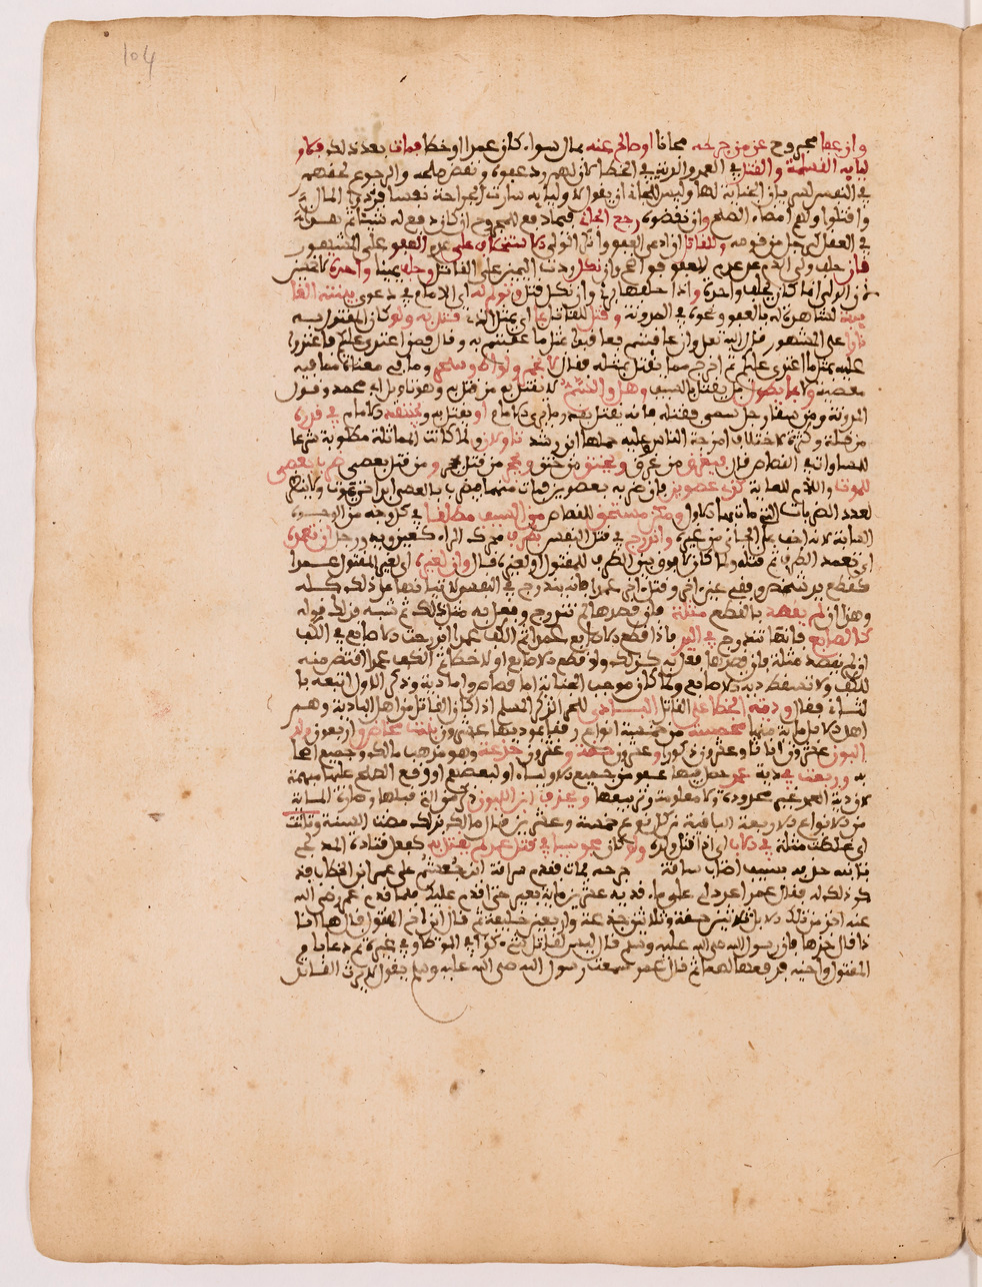 104
وان عفا مجروح عن من جرحه مجانا او صالح عنه بمال سواء كان عمدا او خطا فمات بعد ذلك
القسامة والقتل في العمد والدية في الخطا لان لهم رد عفوه ونقض صلحه والرجوع لحقهم
في النفس بان الجناية لها وليس للجاني ان يقول لاوليايه صارت الجراحة نفسا فردوا المال
واقتلوا ولهم امضاء الصلح وان نقضوه رجع الجاني فيما دفع للمجروح ان كان دفع له شيئا
في العفل وللقاتل ان ادعى العفو وانكر الولي الاستحلاف على عدم العفو على المشهور
فان حلف ولي الدم على عدم العفو وان نكل ردت اليمين على القاتل وحلف يمينا واحدة لا خمسين
لان الولي انما كان يحلف واحدة واذا حلفها برئ وان نكل قتل وتلوم له اي الامام في دعوى بينته الغا
يبة الشاهدة له بالعفو ونحوه في المدونة وقتل القاتل بما اي بمثل الذي قتل به ولو كان المقتول به
نارا على المشهور قال الله تعالى وان عاقبتم فعاقبوا بمثل ما عوقبتم به وقال فمن اعتدى عليكم فاعتدوا
عليه بمثل ما اعتدى عليكم ثم اخرج مما يقتل بمثله فقال لا بخمر ولواط وسحر وما في معناه مما فيه
معصية ولا بما يطول بل يقتل بالسيف وهل والسم لا يقتل به من قتل به وهو تاويل ابي محمد وقول
المدونة ومن سقا رجلا سما فقتله فانه يقتل بقدر ما يرى الامام او يقتل به ويجتهد الامام في قدره
من قلة وكثرة لاختلاف امزجة الناس وعليه حملها ابن رشد تاويلان ولما كانت المماثلة مطلوبة شرعا
للمساوات في القصاص قال فيغرق من غرق ويخنق من خنق ويحجر من قتل بحجر ومن قتل بعصى ضرب بالعصى
للموت واللام للغاية كذي عصوين فان ضربه بعصوين فمات منهما ضرب بالعصى ابدا حتى يموت ولا ينظر
لعدد الضربات التي مات بها الاول ومكن مستحق للقصاص من السيف مطلقا في كل وجه من الوجوه
السابقة لانه اخف على الجاني من غيره واندرج في قتل النفس طرف من يد المراة كعين ويد ورجل ان تعمده
اي تعمد الطرف ثم قتله ولما كان لا فرق بين الطرف للمقتول او لغيره قال وان لغيره اي لغير المقتول عمدا
كقطع يد شخص وفقئ عين اخر وقتل اخر عمدا فانه يندرج في النفس لانها تاتي على ذلك كله
وهذا ان لم يقصد بالقطع مثلة فان قصدها لم تندرج وفعل به مثل ذلك ثم شبه فزاد قوله
كالاصابع فانها تندرج في اليد فاذا قطع الاصابع عمدا ثم الكف عمدا اندرجت الاصابع في الكف
ان لم يقصد مثلة فان قصدها فعل به كذلك ولو قطع الاصابع اولا خطا ثم الكف عمدا اقتص منه
للكف ولا تسقط دية الاصابع ولما كان موجب الجناية اما قصاص واما دية وذكر الاول اتبعه با
لثاني فقال ودية الخطا على القاتل البادي للحر الذكر المسلم اذا كان القاتل من اهل البادية وهم
اهل الابل ماية منها مخمسة من خمسة انواع رفقا بمؤديها عشرون بنت مخاض وابن
لبون عشرون اناثا وعشرون ذكورا وعشرون حقة وعشرون جذعة وهو مذهب مالك وجميع اصحا
به وربعت في دية عمد حصل فيها عفو من جميع الاولياء او لبعضهم او وقع الصلح عليها مبهمة
لان دية العمد غير محدودة ولا معلومة وتربيعها بحذف ابن اللبون ذكر في التي قبلها وصارة الماية
من الانواع الاربعة الباقية من كل نوع خمسة وعشرين قال مالك بذلك مضت السنة وثلثت
اي غلظت مثلثة في الاب اي اذا قتل ولده ولو كان مجوسيا في قتل عمد لم يقتل به كفعل قتادة المدلجي
بابنه حذفه بسيف اصاب ساقه جرحه فمات فقدم سراقة ابن جعشم على عمر ابن الخطاب فذ
كر ذلك له فقال عمر اعدد لي على ماء قديد عشرين وماية بعير حتى اقدم عليك فلما قدم عمر رضي الله
عنه اخذ من تلك الابل ثلاثين حقة وثلاثين جذعة واربعين خليفة ثم قال اين اخ المقتول قال ها انا
ذا قال خذها فان رسول الله صلى الله عليه وسلم قال ليس لقاتل شيء كذا في الموطا وفي غيره ثم دعا
المقتول واخيه فدفعها لهما ثم قال عمر سمعت رسول الله صلى الله عليه وسلم يقول لا يرث القاتل